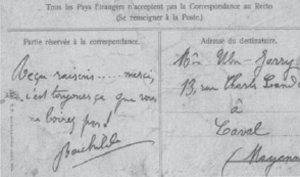 Tous les Pays Étrangers n'acceptent pas la Correspondance au Recto
(Se renseigner à la Poste).
Partie réservée à la correspondance.
Reçu raisins... merci,
c'est toujours ça que vous
ne boirez pas!
Adresse du destinataire.
13, rue Charles
à
Laval
(Mayenne